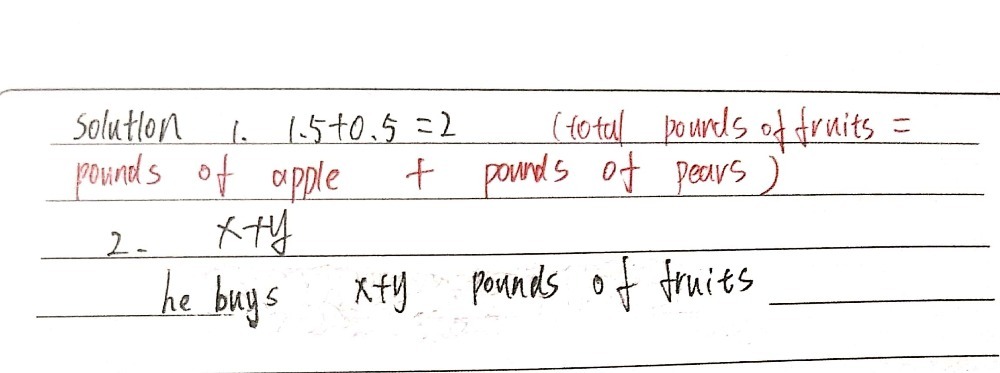 Solution 1. 1.5+0.5=2 (total pounds of fruits =
pounds of apple + pounds of pears)
2- x+y
he buys x+y pounds of fruits